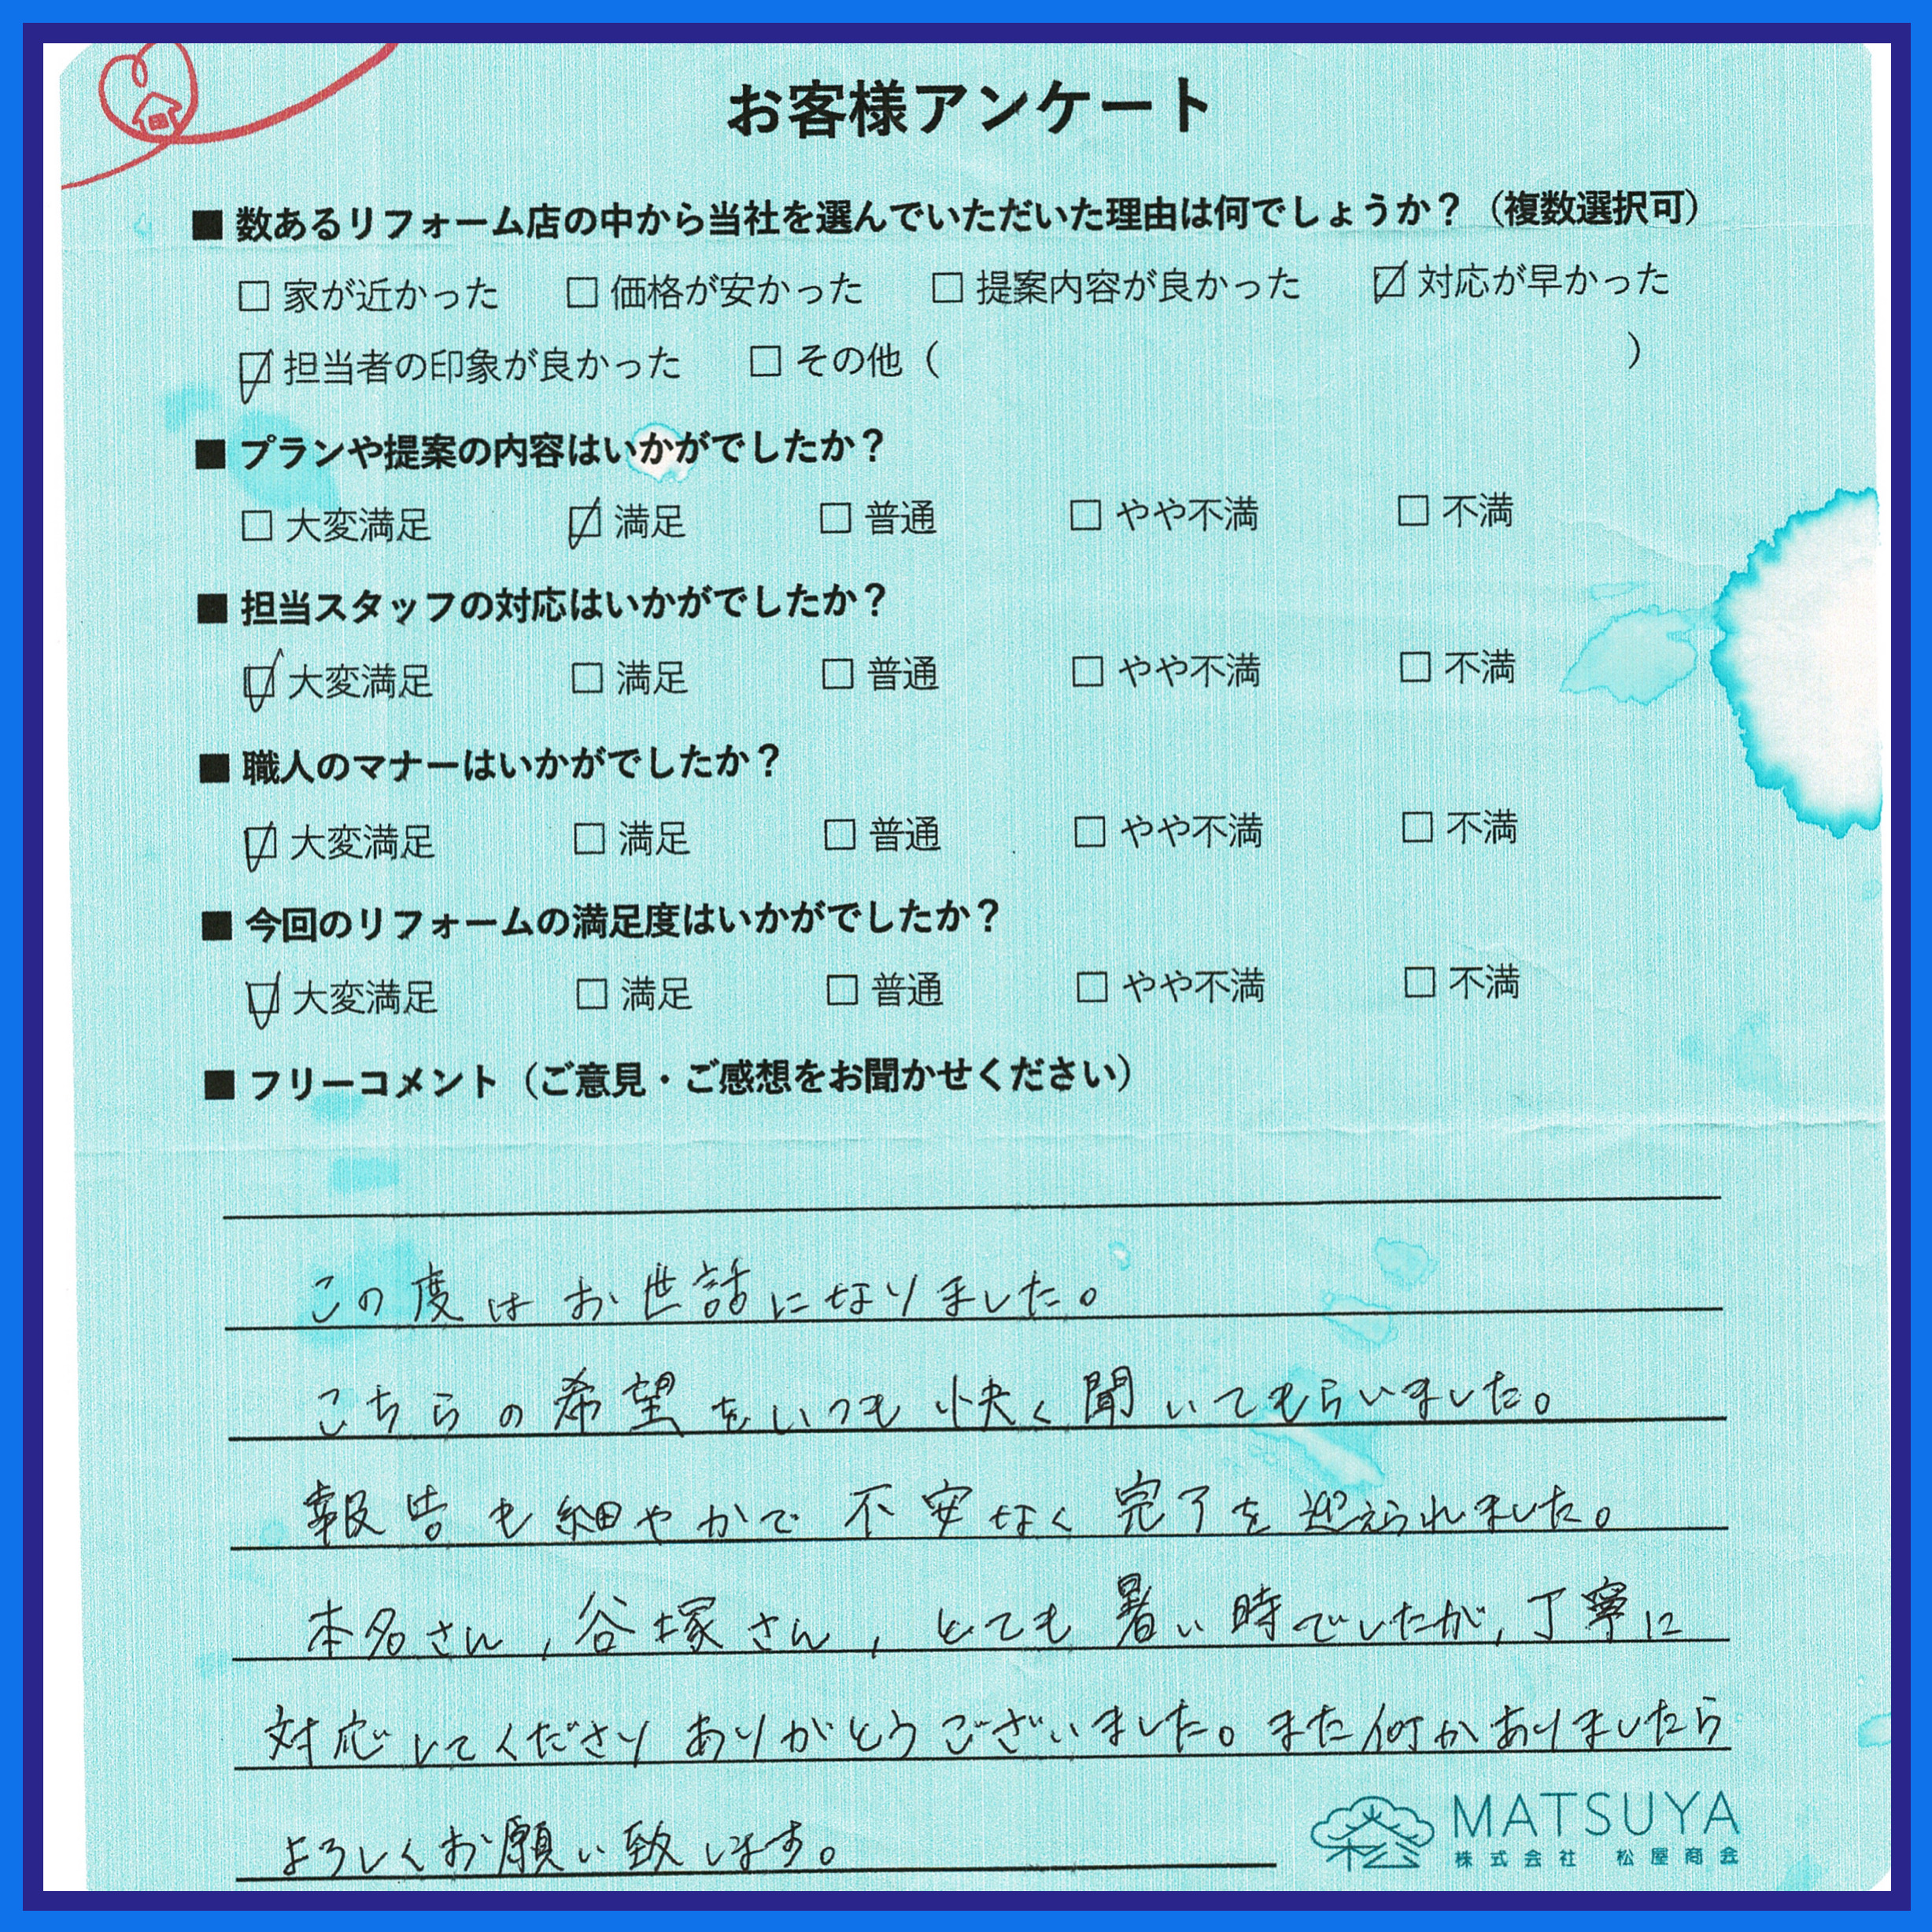 お客様アンケート
■ 数あるリフォーム店の中から当社を選んでいただいた理由は何でしょうか？（複数選択可）
□ 家が近かった □ 価格が安かった □ 提案内容が良かった ☑ 対応が早かった
☑ 担当者の印象が良かった □ その他（ ）
■ プランや提案の内容はいかがでしたか？
□ 大変満足 ☑ 満足 □ 普通 □ やや不満 □ 不満
■ 担当スタッフの対応はいかがでしたか？
☑ 大変満足 □ 満足 □ 普通 □ やや不満 □ 不満
■ 職人のマナーはいかがでしたか？
☑ 大変満足 □ 満足 □ 普通 □ やや不満 □ 不満
■ 今回のリフォームの満足度はいかがでしたか？
☑ 大変満足 □ 満足 □ 普通 □ やや不満 □ 不満
■ フリーコメント（ご意見・ご感想をお聞かせください）
この度はお世話になりました。
こちらの希望をいつも快く聞いてもらいました。
報告も細やかで不安なく完了を迎えられました。
本名さん，谷塚さん，とても暑い時でしたが，丁寧に
対応してくださりありがとうございました。また何かありましたら
よろしくお願い致します。
松 MATSUYA
株式会社 松屋商会